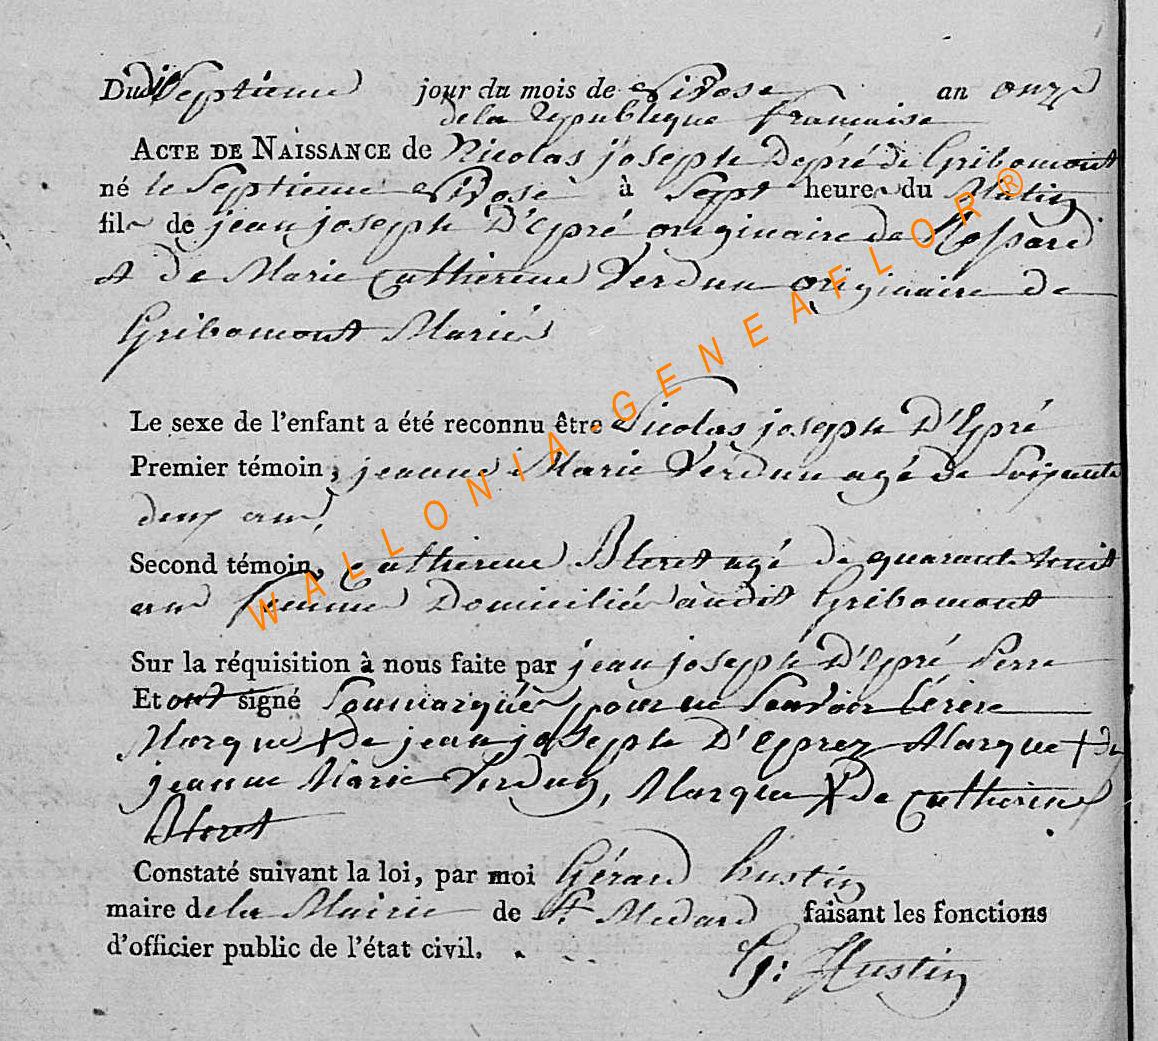 Du dixseptieme jour du mois de Nivose an onze
de la Republique francaise
ACTE DE NAISSANCE de Nicolas joseph Depré de Gribomont
né le Septieme Nivose à Sept heure du Matin
fils de jean joseph D'Epré originaire de
et de Marie Catherine Verdun originaire de
Gribomont Mariés
Le sexe de l'enfant a été reconnu être Nicolas joseph D'Epré
Premier témoin, jeanne Marie Verdun agé de Soixante
deux ans,
Second témoin, Catherine Bloret agé de quarante huit
ans femme Domiciliés audit Gribomont
Sur la réquisition à nous faite par jean joseph D'Epré Perre
Et ont signé Soumarqués pour ne Savoir Ecrire
Marque + de jean joseph D'Eprez Marque + de
jeanne Marie Verdun, Marque X de Catherine
Bloret
Constaté suivant la loi, par moi Gérard hustin
maire de la Mairie de St Medard faisant les fonctions
d'officier public de l'état civil.
G: Hustin
WALLONIA-GENEAFLOR®